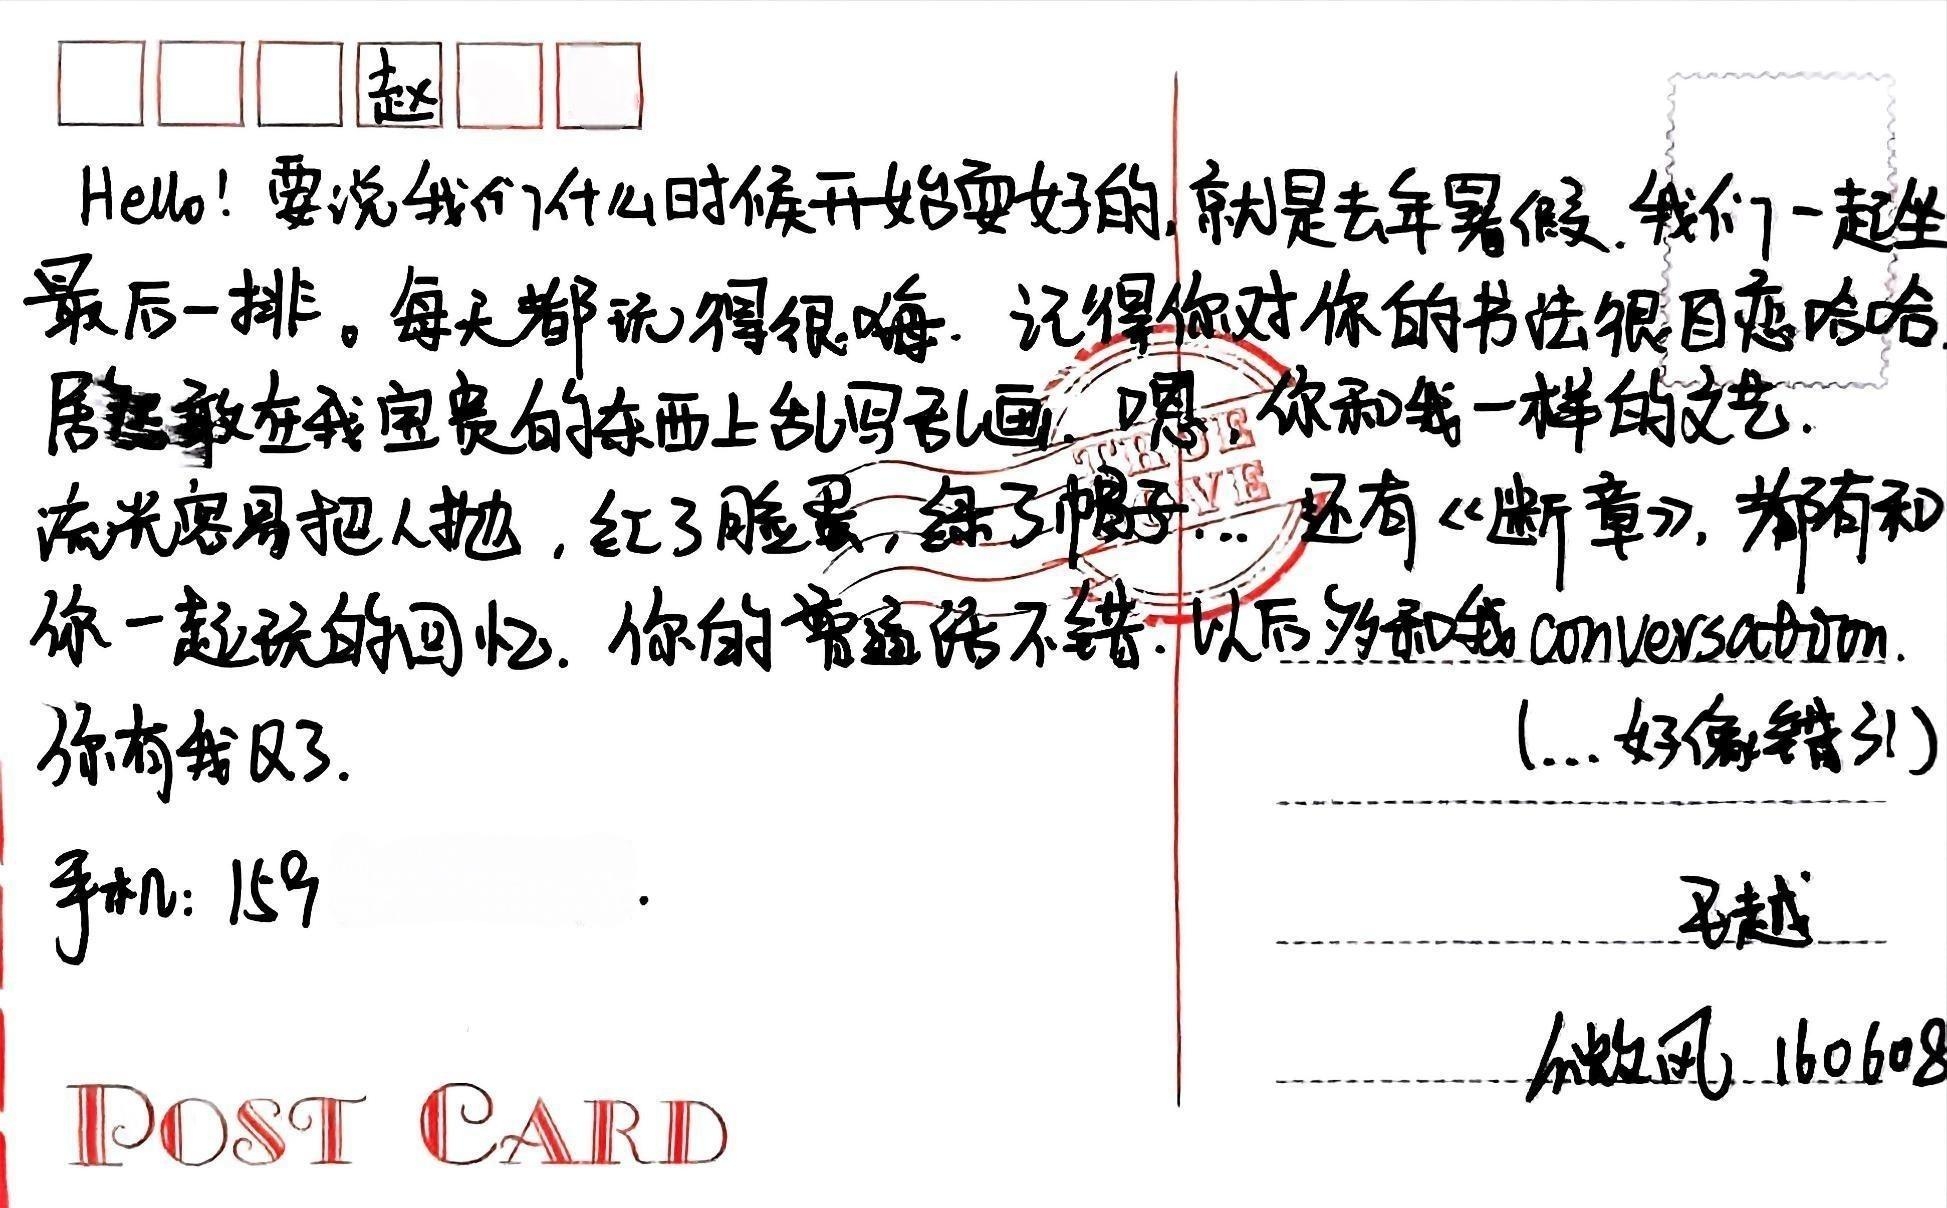 赵
Hello! 要说我们什么时候开始耍好的, 就是去年暑假. 我们一起坐
最后一排。每天都玩得很嗨. 记得你对你的书法很自恋哈哈.
居 敢在我宝贵的东西上乱写乱画. 嗯, 你和我一样的文艺.
TRUE
LOVE
流光容易把人抛, 红了脸蛋, 绿了帽子... 还有《断章》, 都有和
你一起玩的回忆. 你的普通话不错. 以后多和我 conversation.
你有我QQ了. (... 好像错引)
手机: 159 .
越
微风 160608
POST CARD